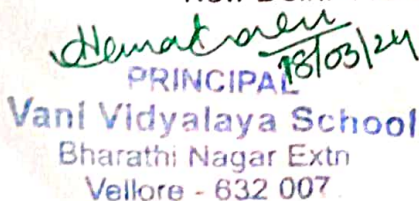 18/03/24
PRINCIPAL
Vani Vidyalaya School
Bharathi Nagar Extn
Vellore - 632 007